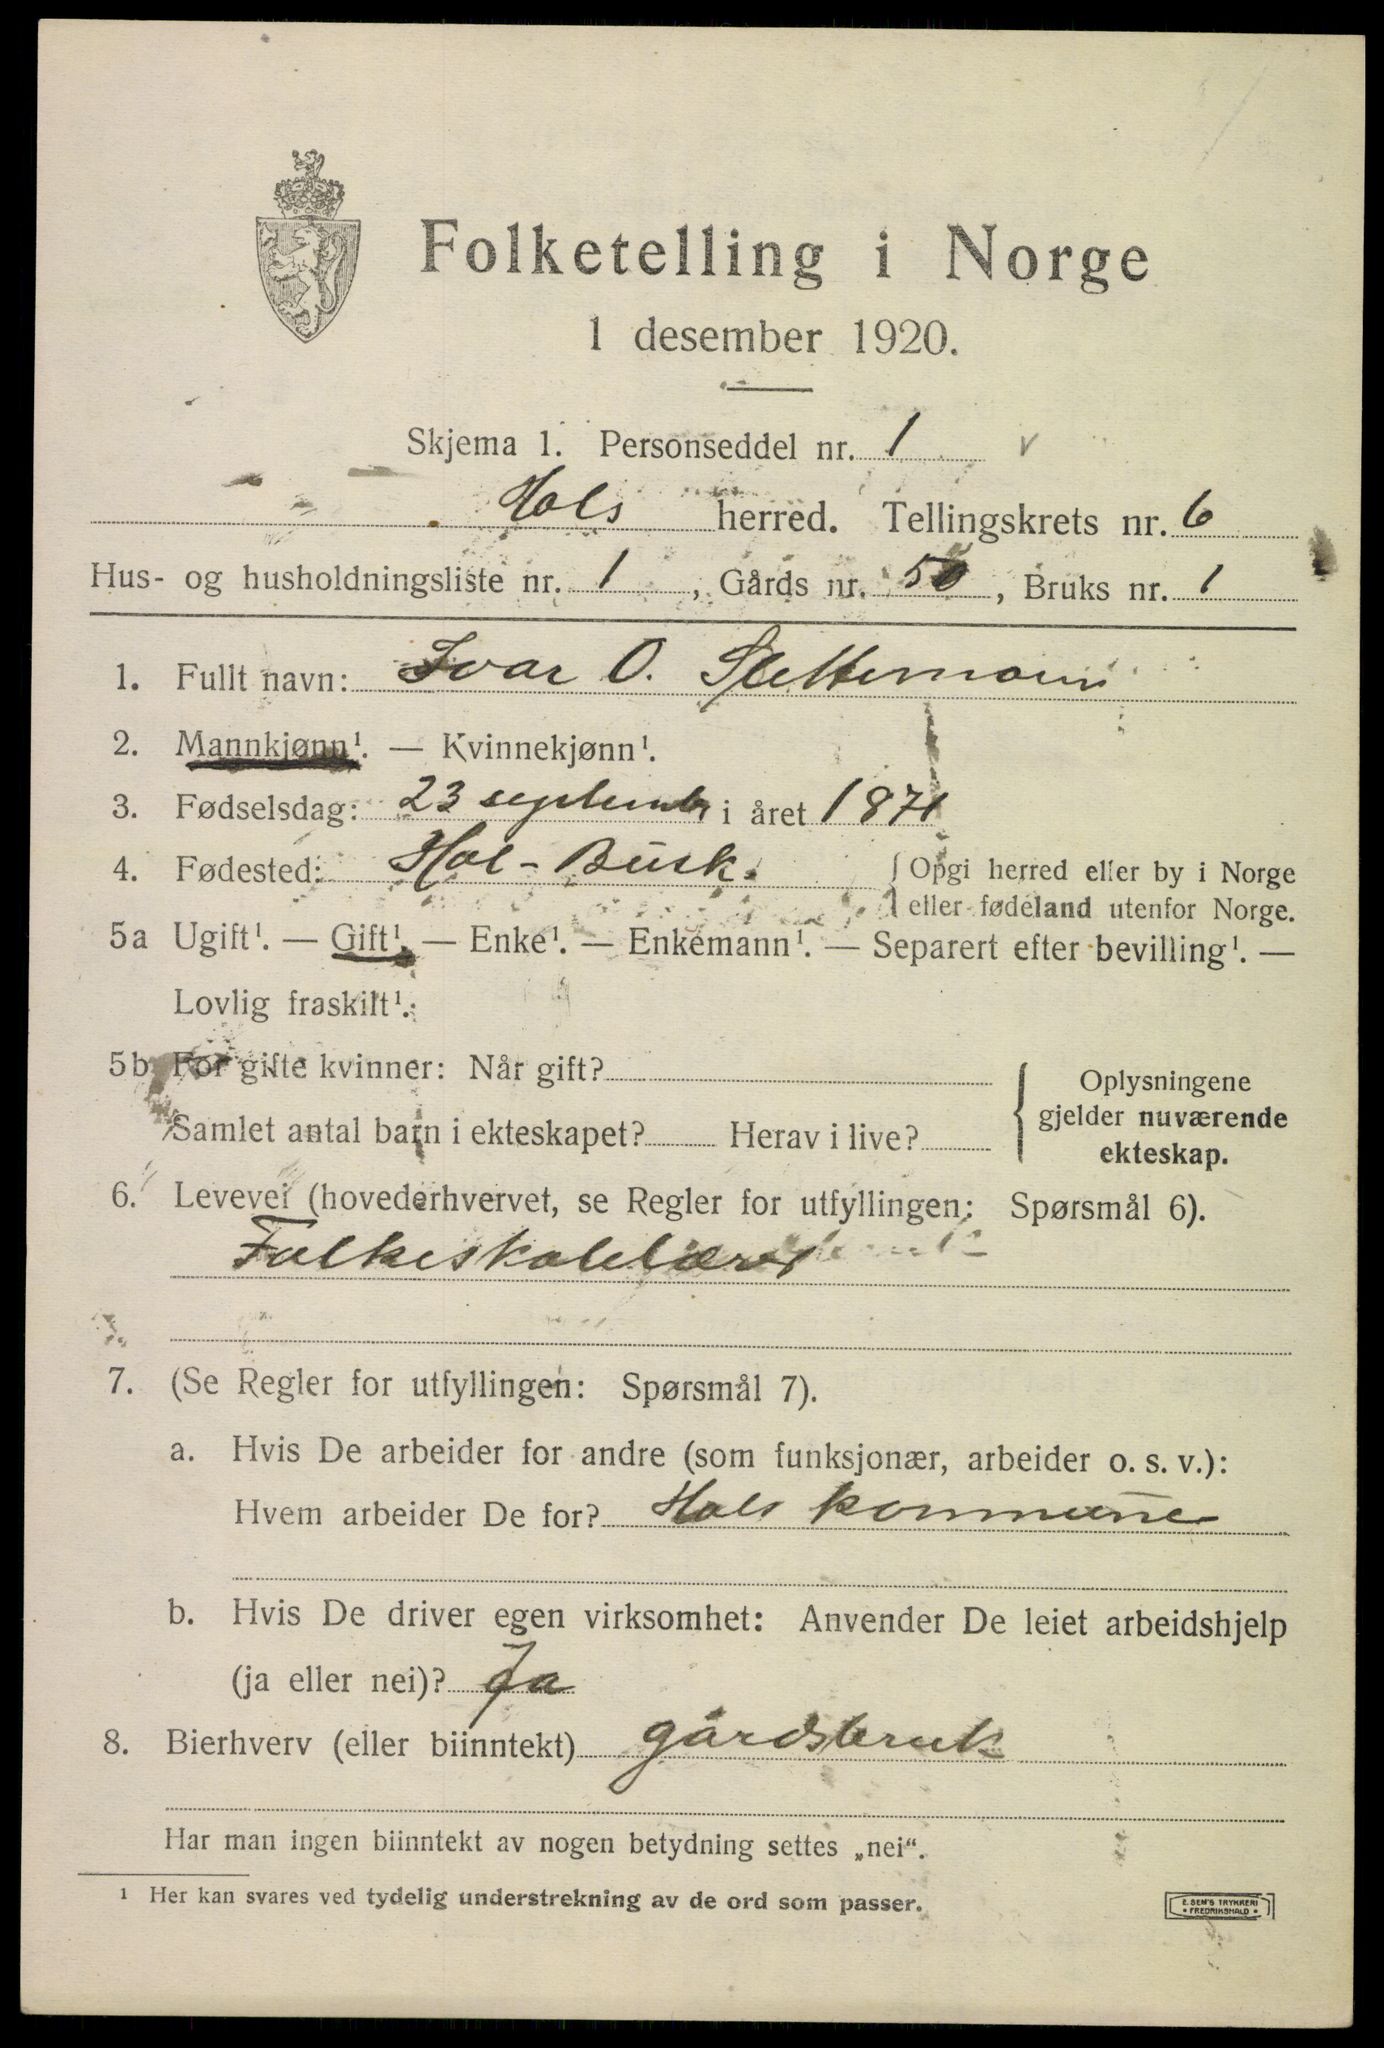 Folketelling i Norge
1 desember 1920.
Skjema 1. Personseddel nr. 1
Hols herred. Tellingskrets nr. 6
Hus- og husholdningsliste nr. 1, Gårds nr. 50, Bruks nr. 1
1. Fullt navn: Ivar O. Slettemoen
2. Mannkjønn¹. — Kvinnekjønn¹.
3. Fødselsdag: 23 septembr i året 1871
4. Fødested: Hol - Busk. Opgi herred eller by i Norge
eller fødeland utenfor Norge.
5a Ugift¹. — Gift¹. — Enke¹. — Enkemann¹. — Separert efter bevilling¹. —
Lovlig fraskilt¹.
5b For gifte kvinner: Når gift? Oplysningene
gjelder nuværende
Samlet antal barn i ekteskapet? Herav i live? ekteskap.
6. Levevei (hovederhvervet, se Regler for utfyllingen: Spørsmål 6).
Folkeskolelærer
7. (Se Regler for utfyllingen: Spørsmål 7).
a. Hvis De arbeider for andre (som funksjonær, arbeider o. s. v.):
Hvem arbeider De for? Hols kommune
b. Hvis De driver egen virksomhet: Anvender De leiet arbeidshjelp
(ja eller nei)? Ja
8. Bierhverv (eller biinntekt) gårdsbruk
Har man ingen biinntekt av nogen betydning settes „nei“.
¹ Her kan svares ved tydelig understrekning av de ord som passer.
E. SEM'S TRYKKERI
• FREDRIKSHALD •